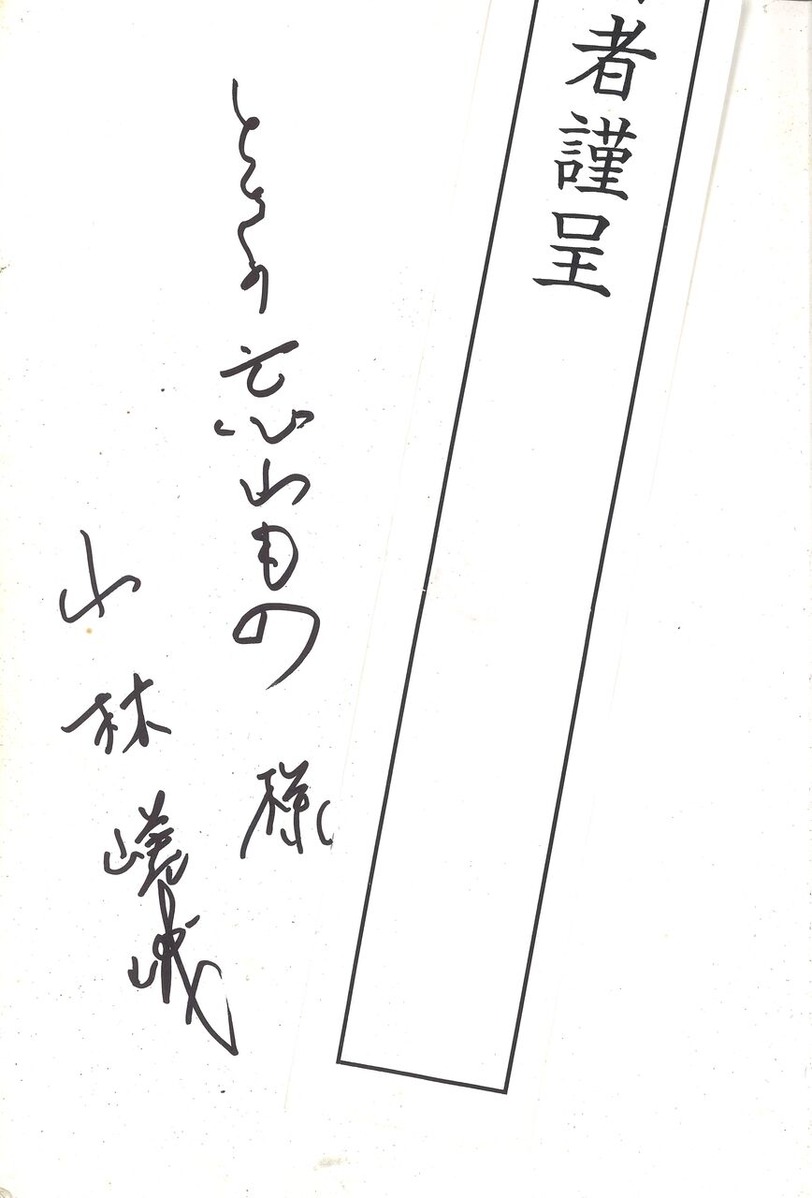 者謹呈
ときの忘れもの 様
小林嵯峨